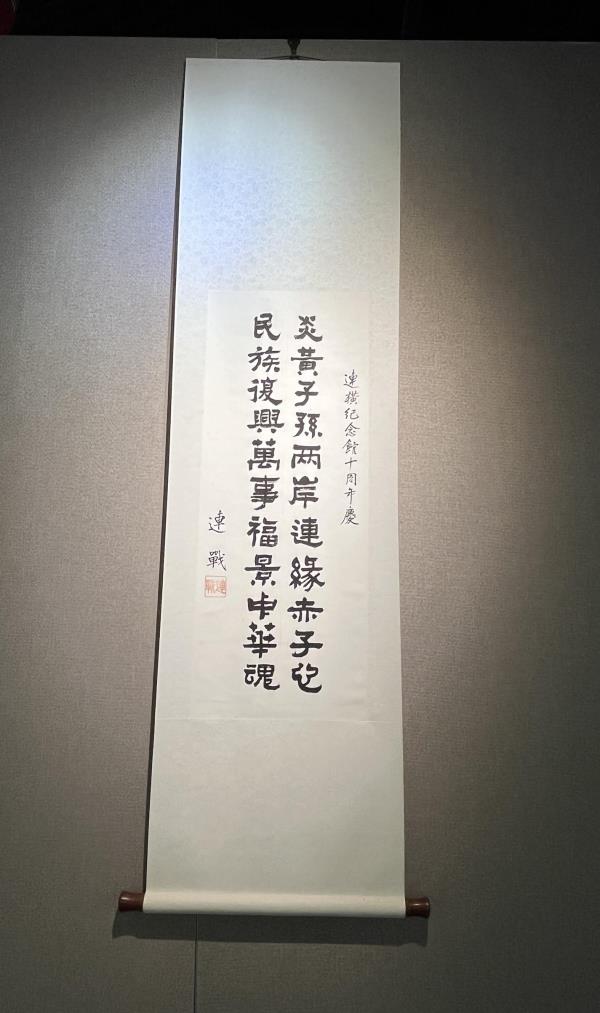 連橫紀念館十周年慶
炎黃子孫两岸連緣赤子心
民族復興萬事福景中華魂
連戰